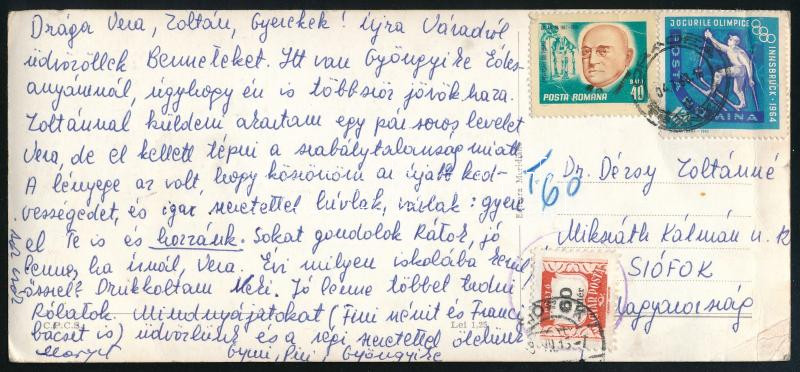 Drága Vera, Zoltán, Gyerekek! Újra Váradról
üdvözöllek Benneteket. Itt van Gyöngyike Édes-
anyámnál, úgyhogy én is többször jövök haza.
Zoltánnal küldeni akartam egy pár soros levelet
Vera, de el kellett tépni a szabálytalanság miatt.
A lényege az volt, hogy köszönöm az újabb ked-
vességedet, és igaz szeretettel hívlak, várlak: gyere
el Te is és hozzánk. Sokat gondolok Rátok, jó
lenne, ha írnál, Vera. Évi milyen iskolába kerül
ősszel? Drukkoltam Neki. Jó lenne többet tudni
Rólatok. Mindnyájatokat (Fini nénit és Francy
bácsit is) üdvözlünk és a régi szeretettel ölelünk
Gyuri, Pici, Gyöngyike
C.P.C.S.
Lei 1,25
POSTA ROMANA
40
JOCURILE OLIMPICE
INNSBRUCK-1964
POSTA
T. 60
Dr. Dézsy Zoltánné
Mikszáth Kálmán u. 12
SIÓFOK
Magyarország
60